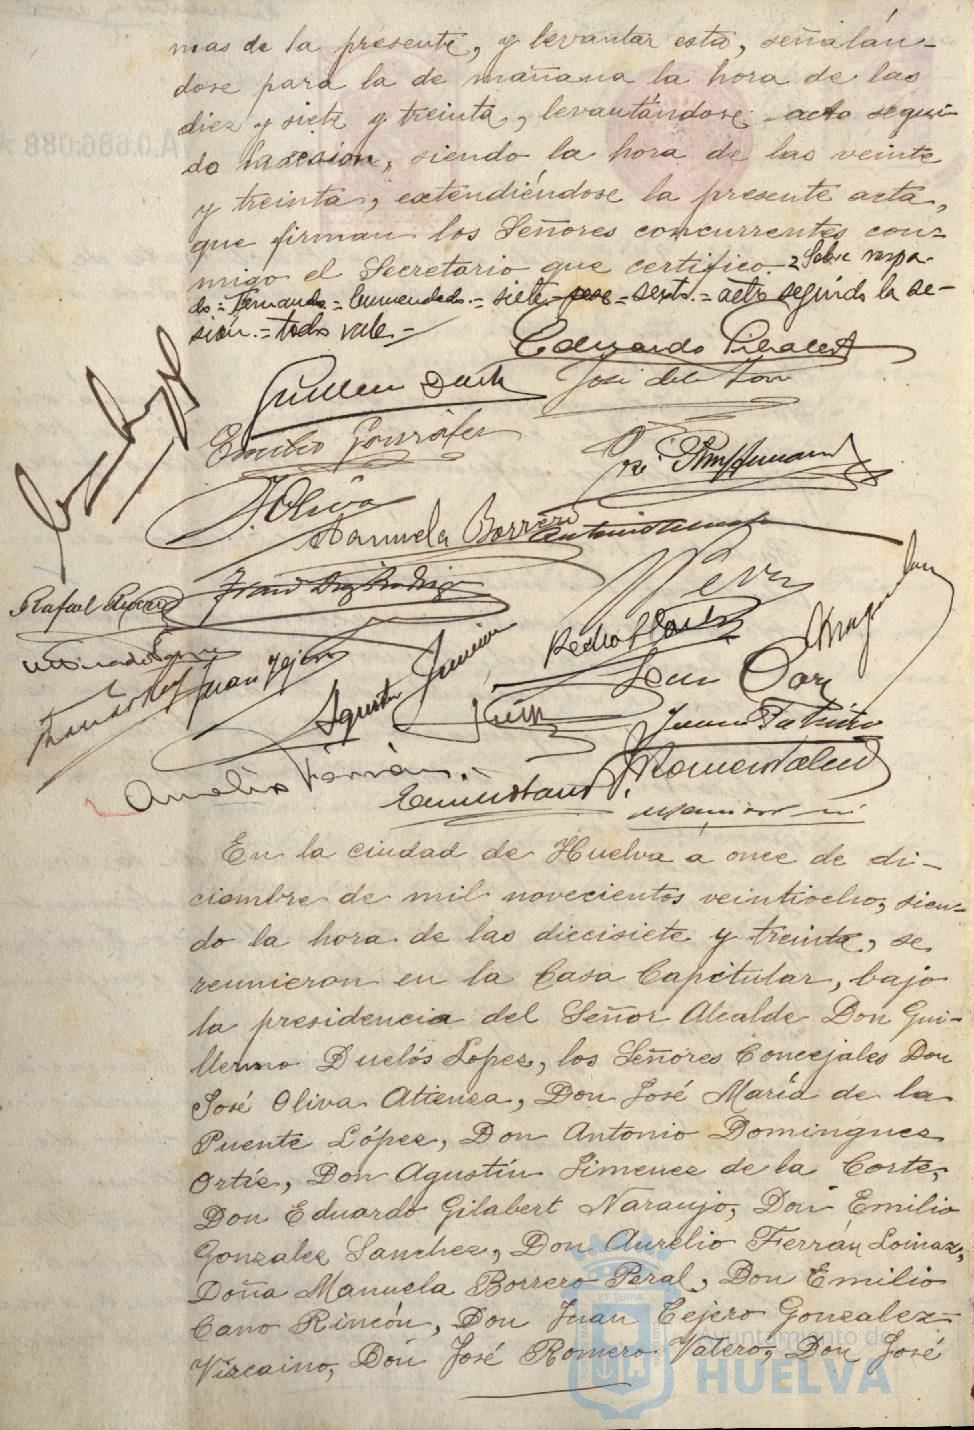 mas de la presente, y levantar esta, señalán-
dose para la de mañana la hora de las
diez y siete y treinta, levantándose acto segui-
do la sesion, siendo la hora de las veinte
y treinta, extendiéndose la presente acta,
que firman los Señores concurrentes con-
migo el Secretario que certifico. = Sobre raspa-
do = Fernando = Enmendado = siete = sexto = acto seguido la se-
sión. = todo vale =
Eduardo Gilabert
José de la
Emilio González
J. Oliva
Manuela Borrero
Rafael
Juan Tejero
Pedro
Agustín Jimenez
Aurelio Ferrán
J. Romero Valero
En la ciudad de Huelva a once de di-
ciembre de mil novecientos veintiocho, sien-
do la hora de las diecisiete y treinta, se
reunieron en la Casa Capitular, bajo
la presidencia del Señor Alcalde Don Gui-
llermo Duclós Lopez, los Señores Concejales Don
José Oliva Atienza, Don José María de la
Puente López, Don Antonio Dominguez
Ortíz, Don Agustín Jimenez de la Corte,
Don Eduardo Gilabert Naranjo, Don Emilio
Gonzalez Sanchez, Don Aurelio Ferrán Loinaz,
Doña Manuela Borrero Peral, Don Emilio
Cano Rincón, Don Juan Tejero Gonzalez-
Vizcaino, Don José Romero Valero, Don José
Ayuntamiento de
HUELVA